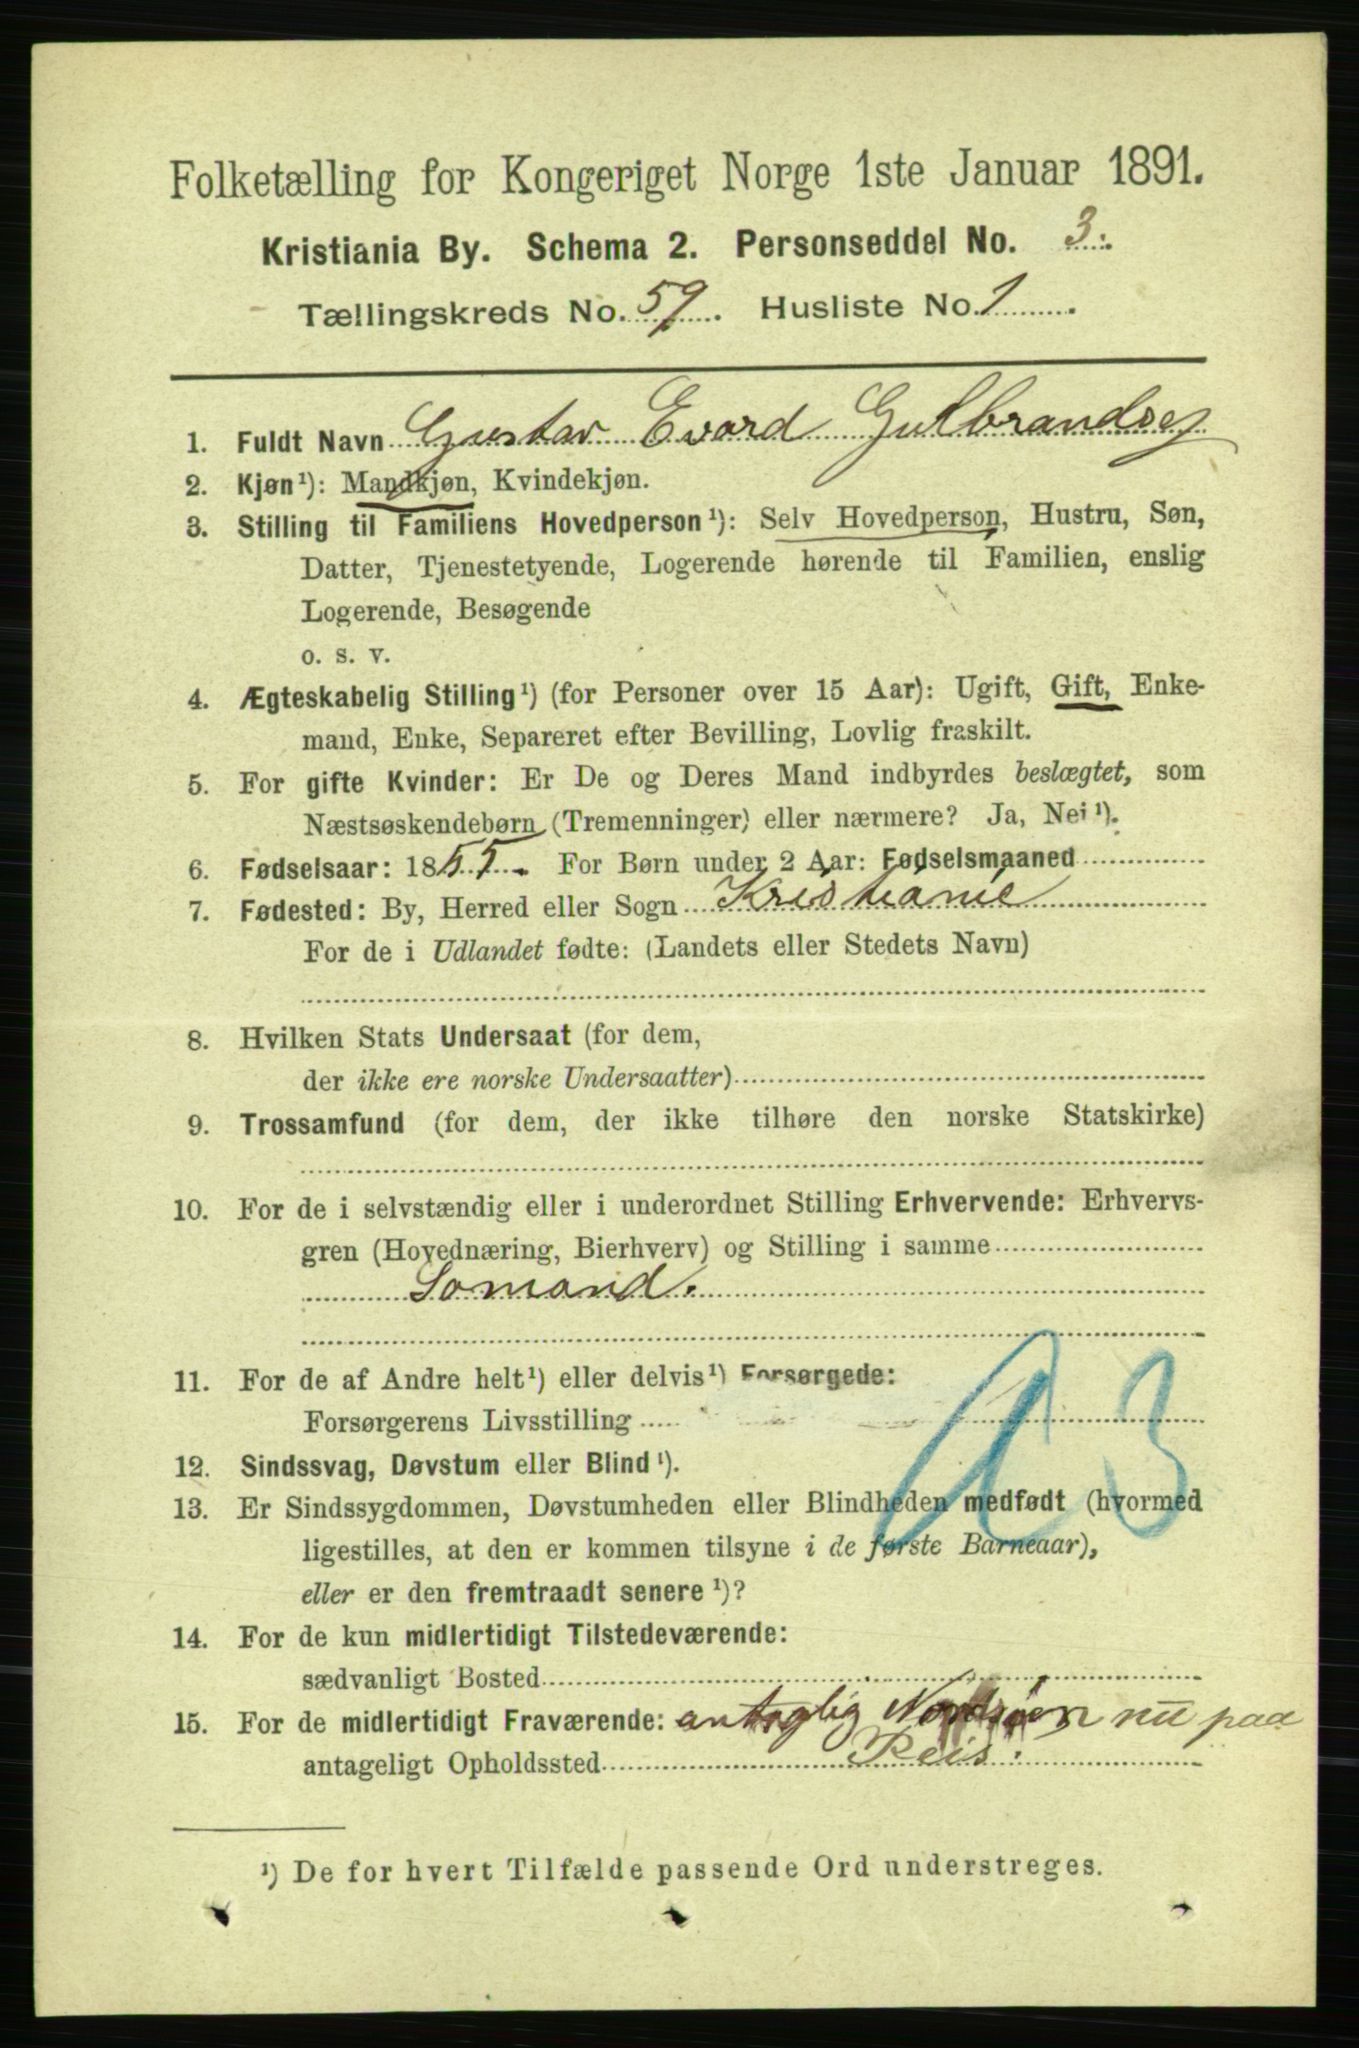 Folketælling for Kongeriget Norge 1ste Januar 1891.
Kristiania By. Schema 2. Personseddel No. 3.
Tællingskreds No. 59. Husliste No. 1.
1. Fuldt Navn Gustav Evard Gulbrandsen
2. Kjøn¹): Mandkjøn, Kvindekjøn.
3. Stilling til Familiens Hovedperson¹): Selv Hovedperson, Hustru, Søn,
Datter, Tjenestetyende, Logerende hørende til Familien, enslig
Logerende, Besøgende
o. s. v.
4. Ægteskabelig Stilling¹) (for Personer over 15 Aar): Ugift, Gift, Enke-
mand, Enke, Separeret efter Bevilling, Lovlig fraskilt.
5. For gifte Kvinder: Er De og Deres Mand indbyrdes beslægtet, som
Næstsøskendebørn (Tremenninger) eller nærmere? Ja, Nei¹).
6. Fødselsaar: 1855. For Børn under 2 Aar: Fødselsmaaned
7. Fødested: By, Herred eller Sogn Kristiania
For de i Udlandet fødte: (Landets eller Stedets Navn)
8. Hvilken Stats Undersaat (for dem,
der ikke ere norske Undersaatter)
9. Trossamfund (for dem, der ikke tilhøre den norske Statskirke)
10. For de i selvstændig eller i underordnet Stilling Erhvervende: Erhvervs-
gren (Hovednæring, Bierhverv) og Stilling i samme
Somand.
11. For de af Andre helt¹) eller delvis¹) Forsørgede:
Forsørgerens Livsstilling
12. Sindssvag, Døvstum eller Blind¹).
13. Er Sindssygdommen, Døvstumheden eller Blindheden medfødt (hvormed
ligestilles, at den er kommen tilsyne i de første Barneaar),
eller er den fremtraadt senere¹)?
14. For de kun midlertidigt Tilstedeværende:
sædvanligt Bosted
15. For de midlertidigt Fraværende: antaglig Nordsøen nu paa
antageligt Opholdssted Reis.
¹) De for hvert Tilfælde passende Ord understreges.